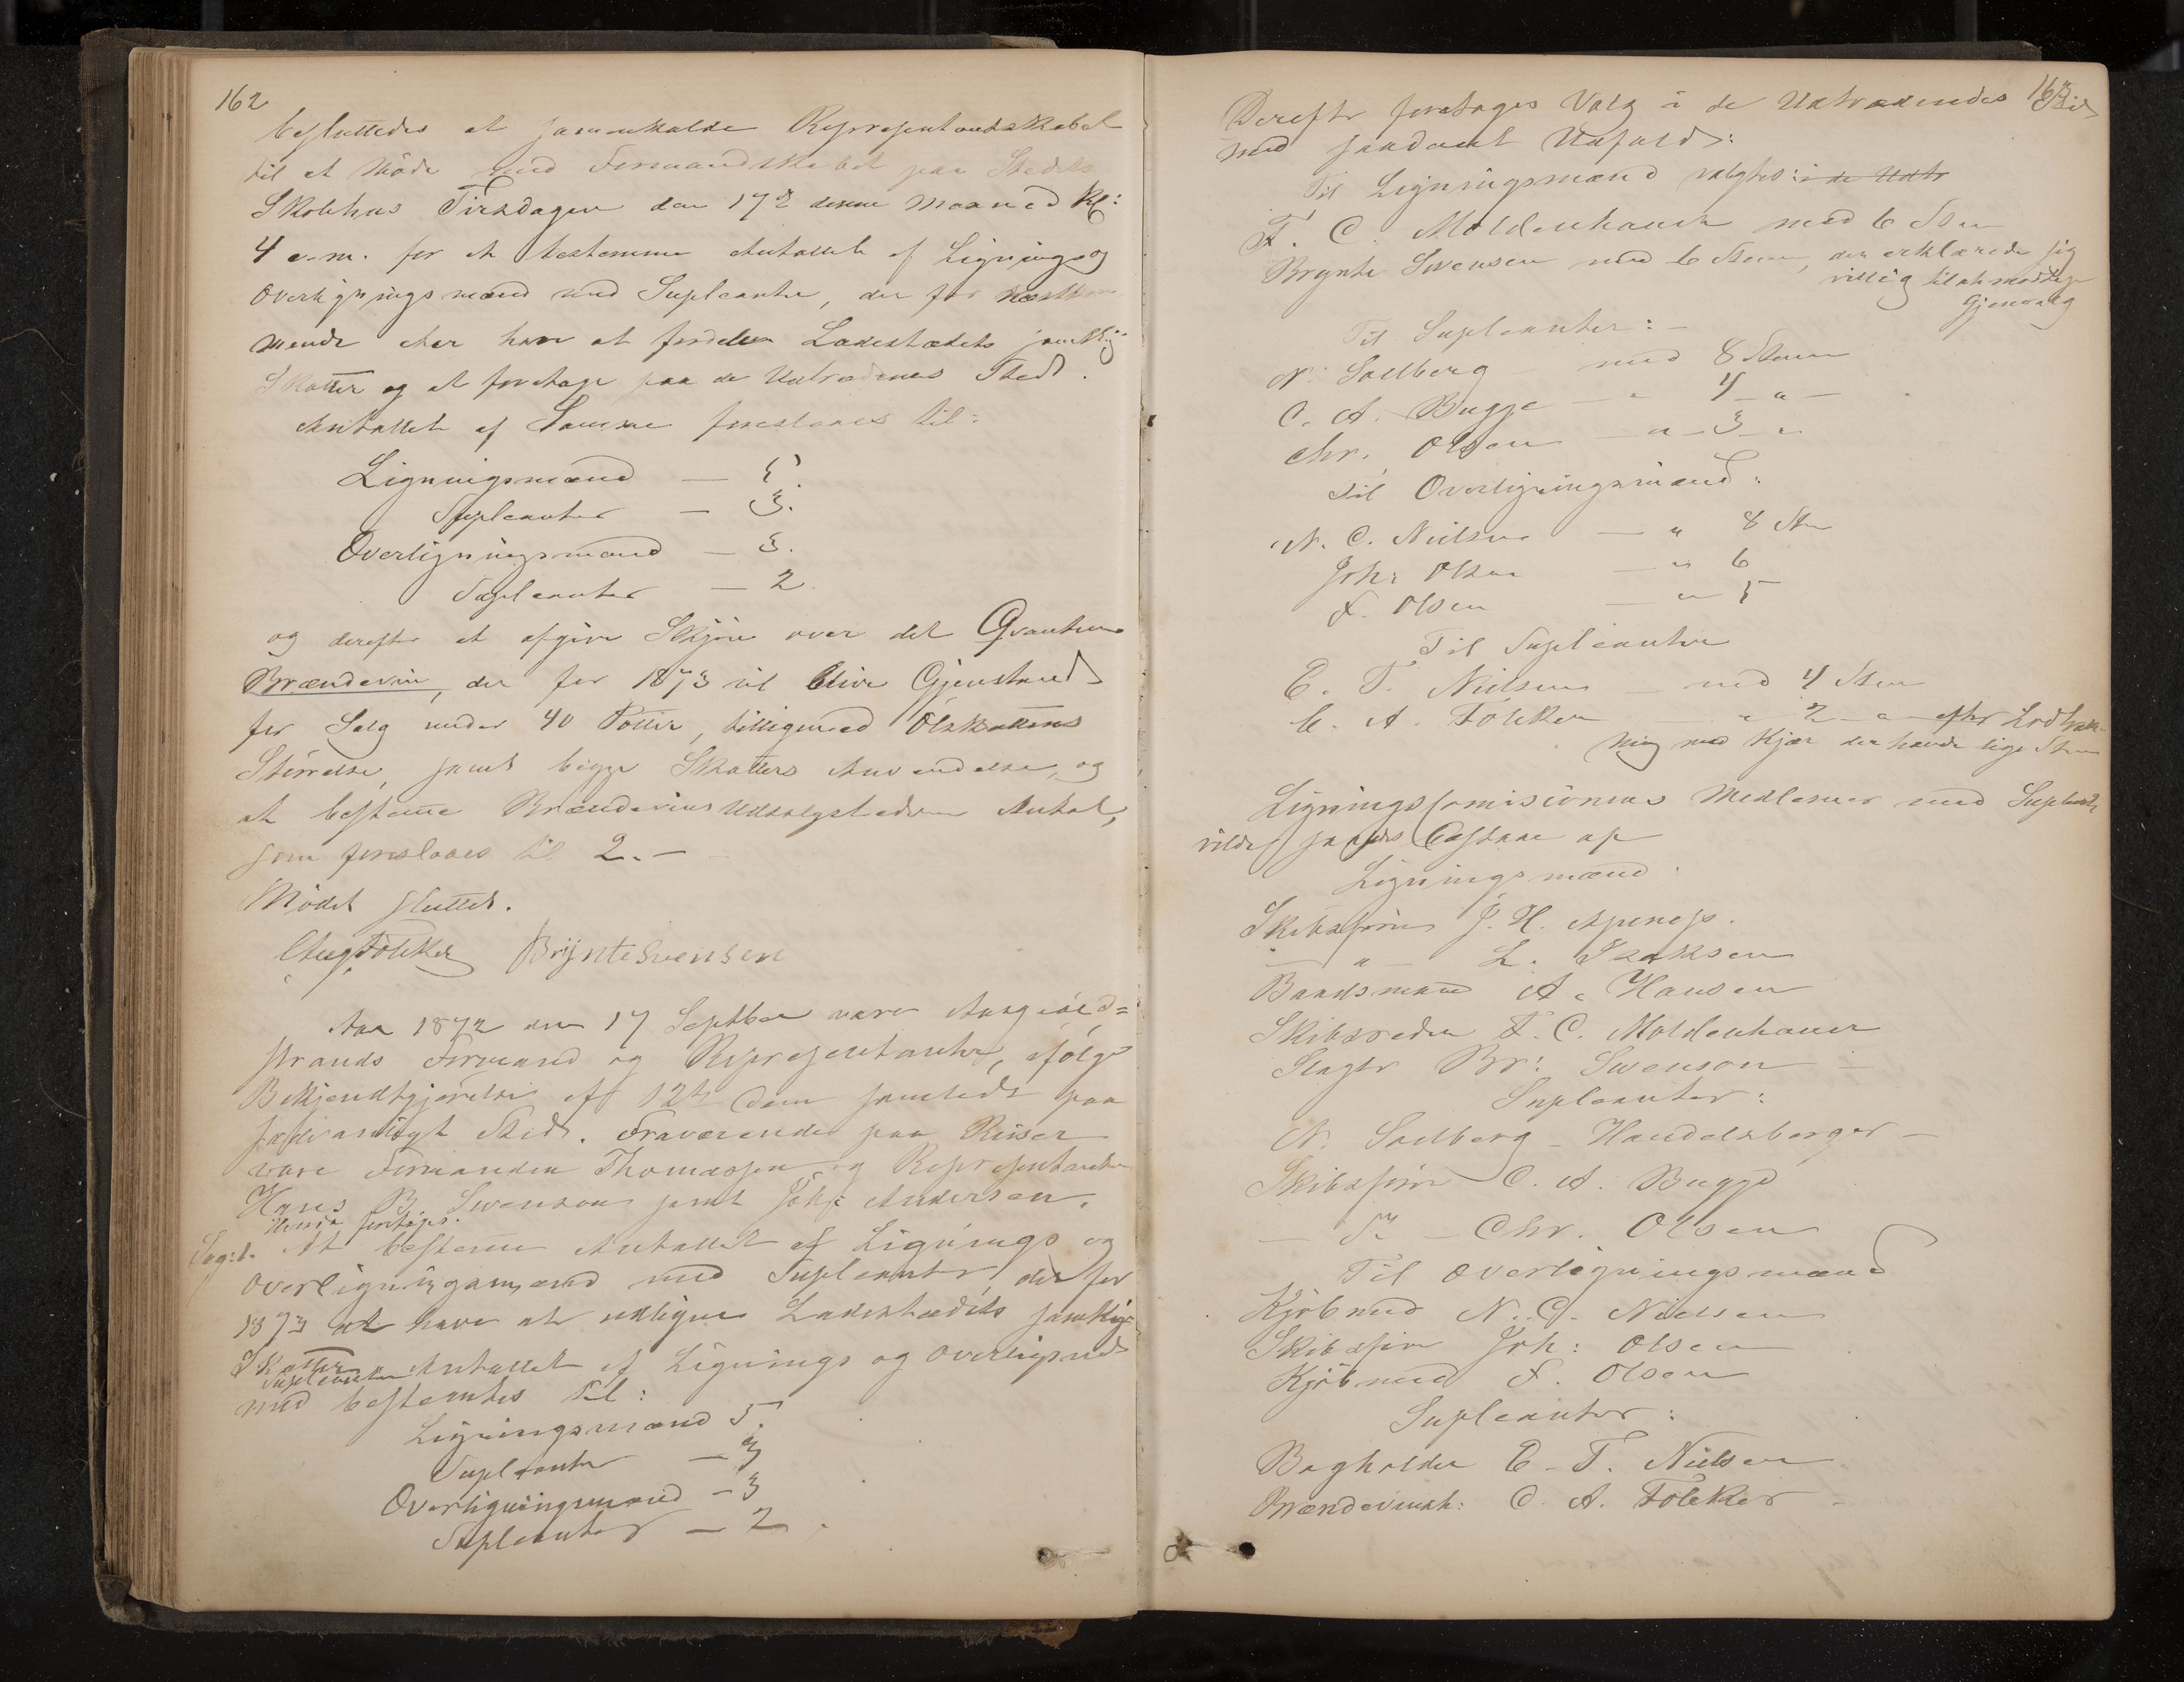 162
besluttedes at sammenkalde Repræsentandskabet
til et Møde med Formandskabet paa Stedets
Skolehus Tirsdagen den 17de denne Maaned Kl:
4 e.m. for at bestemme Antallet af Lignings og
Overligningsmænd med Supleanter, der for næstkom
mende Aar have at fordele Ladestædets samtlige
Skatter og at foretage paa de Udtrædenes Sted.
Antallet af Samme foreslaaes til:
Ligningsmænd — 5.
Supleanter — 3.
Overligningsmænd — 3.
Supleanter — 2
og derefter at afgive Skjøn over det Qvantum
Brændeviin, der for 1873 vil blive Gjenstand
for Salg under 40 Potter, tilligemed Ølskattens
Størrelse, samt begge Skatters Anvendelse, og
at bestemme Brændeviins Udsalgstedernes Antal,
som foreslaaes til 2.—
Mødet sluttet.
Aug Fölcker Brynte Svensen
Aar 1872 den 17 Septber vare Aasgaard=
strands Formænd og Repræsentanter, ifølge
Bekjendtgjørelse af 12te dens samlede paa
sædvanligt Sted. Fraværende paa Reiser
vare Formanden Thomassen og Repræsentanterne
Hans B. Swenson samt Joh: Andersen.
Hvorda foretoges.
Sag: 1. At bestemme Antallet af Lignings og
Overligningsmænd med Supleanter der for
1873 at have at udligne Ladestædets samtlige
Skatter. Antallet af Lignings og Overlignings
Supleanter
med bestemtes til:
Ligningsmænd 5.
Supleanter — 3
Overligningsmænd — 3
Supleanter — 2.
163
Derefter foretoges Valg i de Udtrædendes Sted
med saadant Udfald:
Til Ligningsmænd valgtes: i de Udtr
F. C. Moldenhauer med 6 Stem
Brynte Swensen med 6 Stem, der erklærede sig
villig til at modtage
Gjenvalg
Til Supleanter: —
N. Solberg — med 8 Stem
C. A. Bugge — " 4 — " —
Chr. Olsen — " — 3 — "
Til Overligningsmænd:
N. C. Nielsen — " 8 Stm
Joh: Olsen — " 6
F. Olsen — " 5
Til Supleanter
E. T. Nielsen — med 4 Stem
C. A. Fölcker " 2 — " — efter Lodtræk-
ning med Kjær der havde lige Stem
Ligningscomisionens Medlemer med Supleanter
vilde saaledes bestaae af
Ligningsmænd
Skibsfører J. H. Apenes.
— " — L. Isaksen
Baadsmand A. Hansen
Skibsreder F. C. Moldenhauer
Slagter Br: Swenson —
Supleanter:
N. Solberg — Handelsborger —
Skibsfører C. A. Bugge
— " — Chr. Olsen
Til Overligningsmænd
Kjøbmd N. C. Nielsen
Skibsfører Joh: Olsen
Kjøbmd F. Olsen
Supleanter:
Bogholder E. T. Nielsen
Brændevinsh: C. A. Fölcker